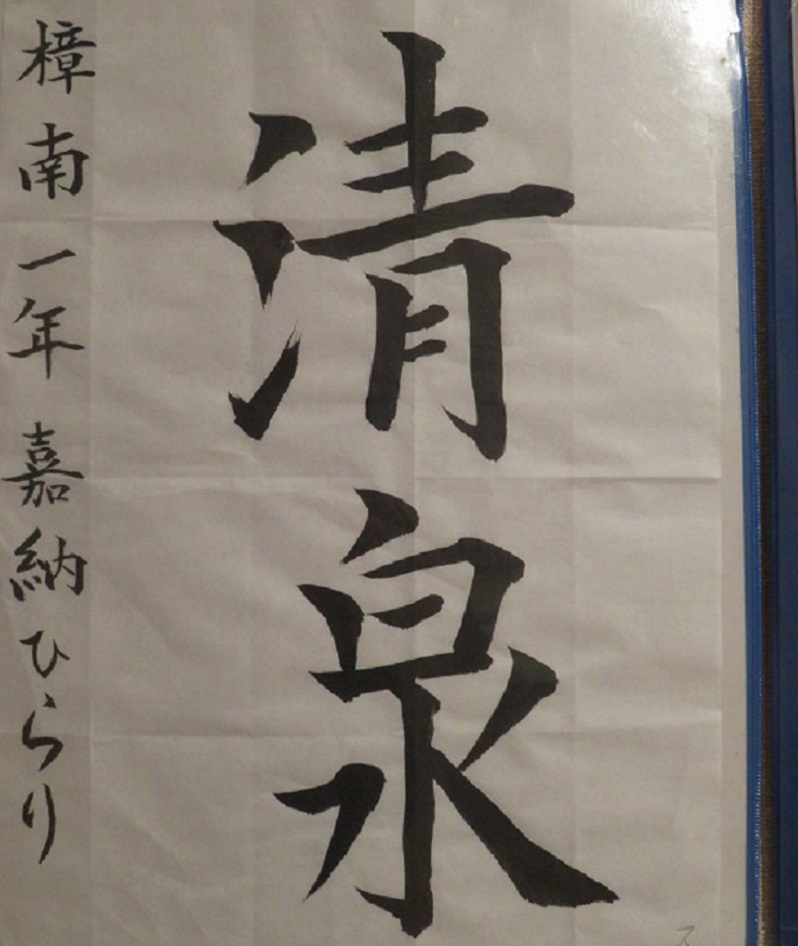 清泉
樟南一年 嘉納ひらり